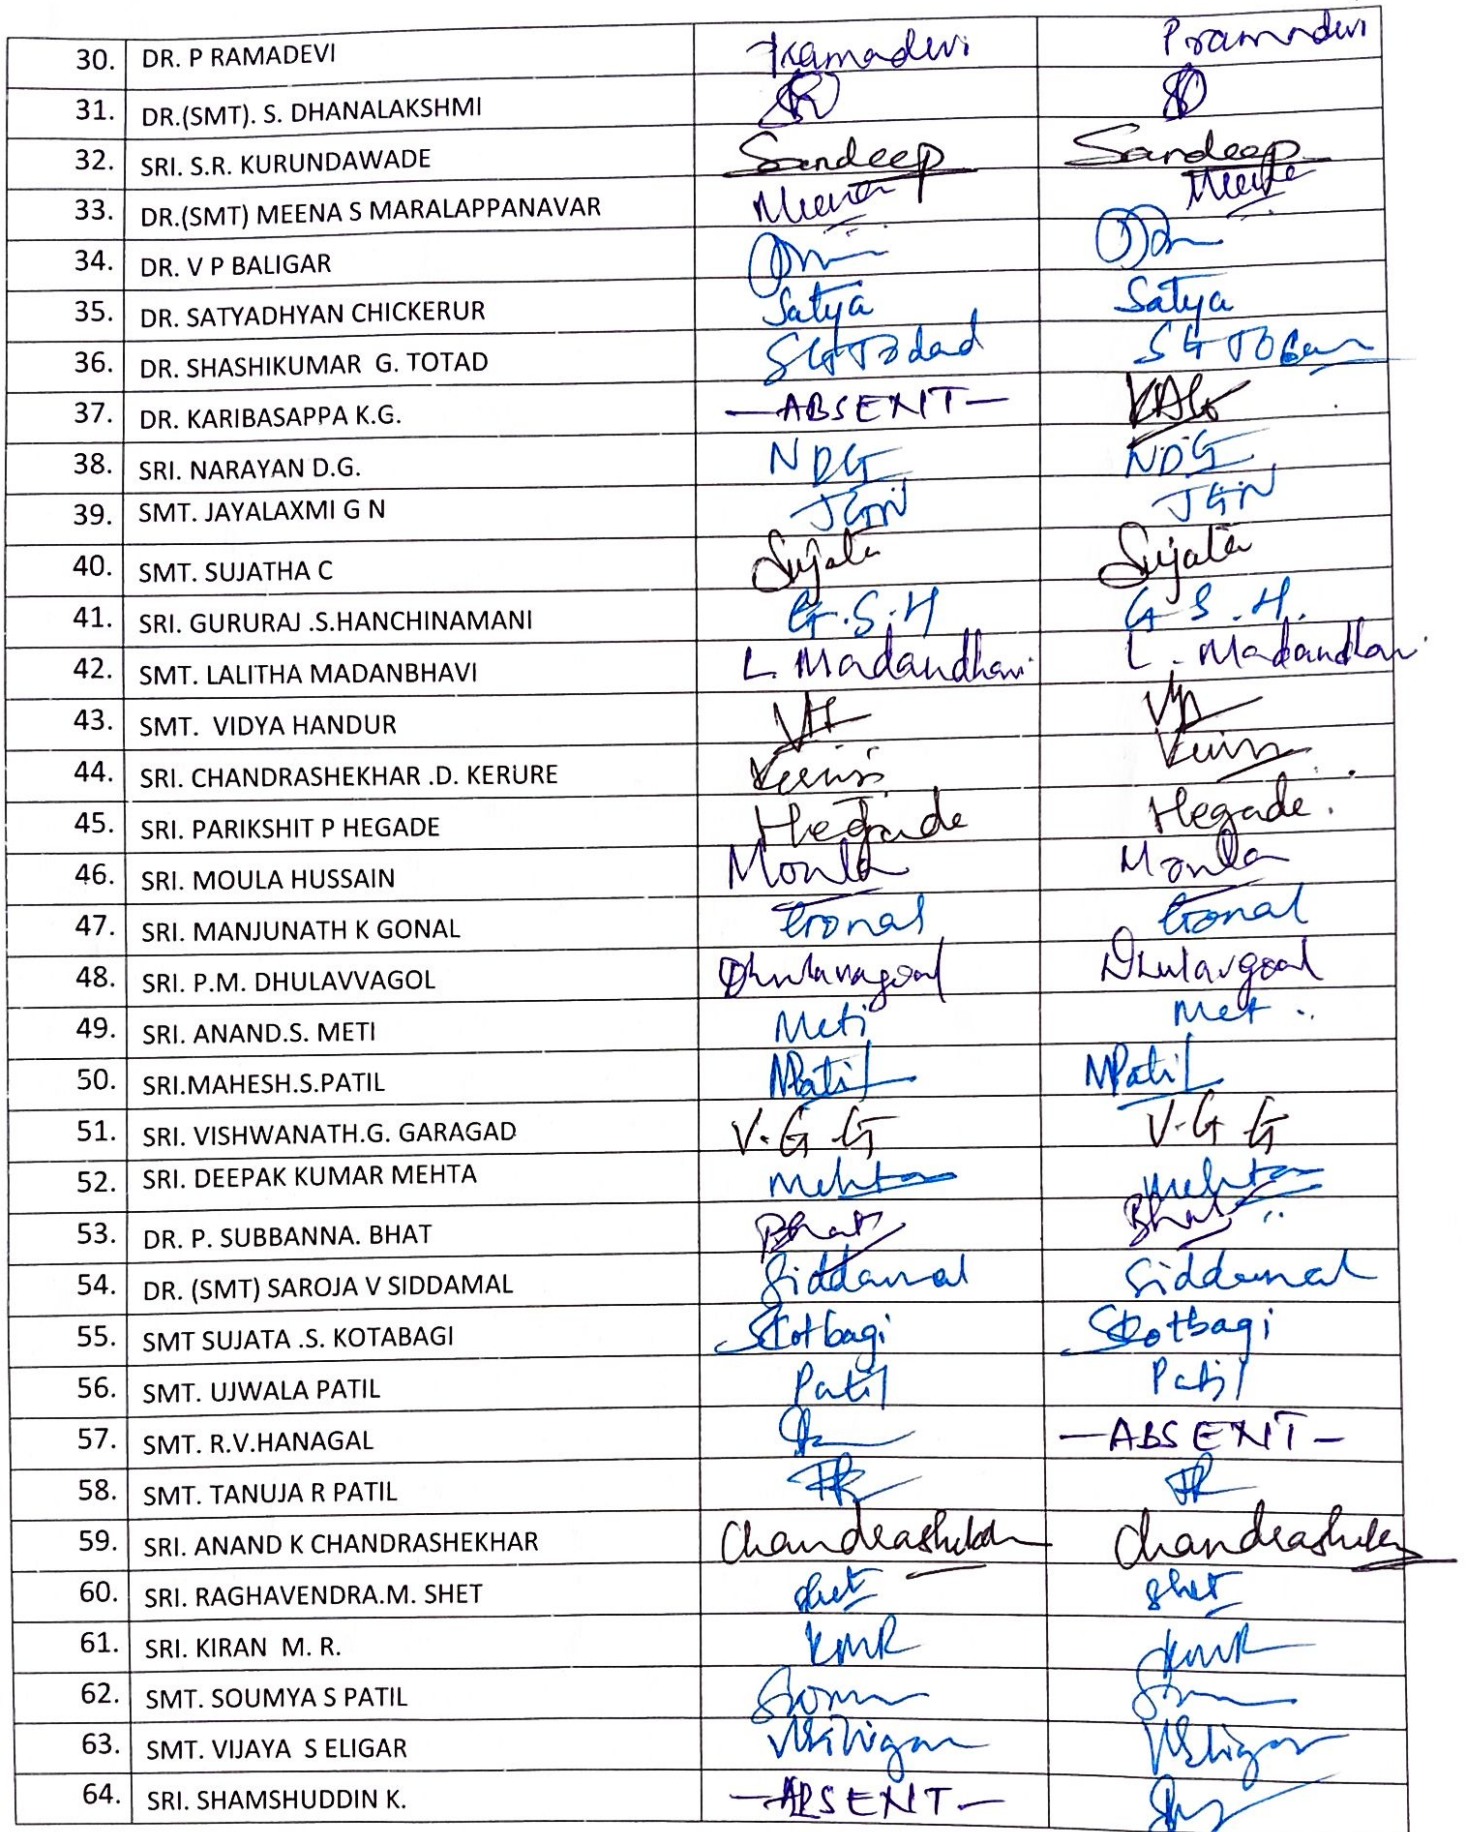 30. DR. P RAMADEVI Pramadevi Pramadevi
31. DR.(SMT). S. DHANALAKSHMI
32. SRI. S.R. KURUNDAWADE Sandeep Sandeep
33. DR.(SMT) MEENA S MARALAPPANAVAR Meena
34. DR. V P BALIGAR
35. DR. SATYADHYAN CHICKERUR Satya Satya
36. DR. SHASHIKUMAR G. TOTAD SGTotad
37. DR. KARIBASAPPA K.G. —ABSENT—
38. SRI. NARAYAN D.G. NDG NDG
39. SMT. JAYALAXMI G N JGN JGN
40. SMT. SUJATHA C Sujata Sujata
41. SRI. GURURAJ .S.HANCHINAMANI G.S.H G.S.H.
42. SMT. LALITHA MADANBHAVI L. Madandhavi L. Madandhavi
43. SMT. VIDYA HANDUR VH
44. SRI. CHANDRASHEKHAR .D. KERURE
45. SRI. PARIKSHIT P HEGADE Hegade Hegade.
46. SRI. MOULA HUSSAIN Moula Moula
47. SRI. MANJUNATH K GONAL Gonal Gonal
48. SRI. P.M. DHULAVVAGOL Dhulavagol Dhulavgoal
49. SRI. ANAND.S. METI Meti Meti
50. SRI.MAHESH.S.PATIL MPatil MPatil
51. SRI. VISHWANATH.G. GARAGAD V.G G V.G G
52. SRI. DEEPAK KUMAR MEHTA Mehta Mehta
53. DR. P. SUBBANNA. BHAT Bhat Bhat
54. DR. (SMT) SAROJA V SIDDAMAL Siddamal Siddamal
55. SMT SUJATA .S. KOTABAGI SKotbagi SKotbagi
56. SMT. UJWALA PATIL Patil Patil
57. SMT. R.V.HANAGAL —ABSENT—
58. SMT. TANUJA R PATIL
59. SRI. ANAND K CHANDRASHEKHAR Chandrashekh Chandrashekh
60. SRI. RAGHAVENDRA.M. SHET Shet Shet
61. SRI. KIRAN M. R. KMR KMR
62. SMT. SOUMYA S PATIL
63. SMT. VIJAYA S ELIGAR VSEligar VSEligar
64. SRI. SHAMSHUDDIN K. —ABSENT—